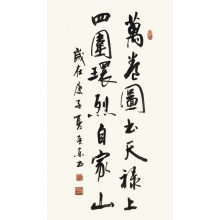 萬卷圖书天禄上
四圍環烈自家山
歲在庚子夏